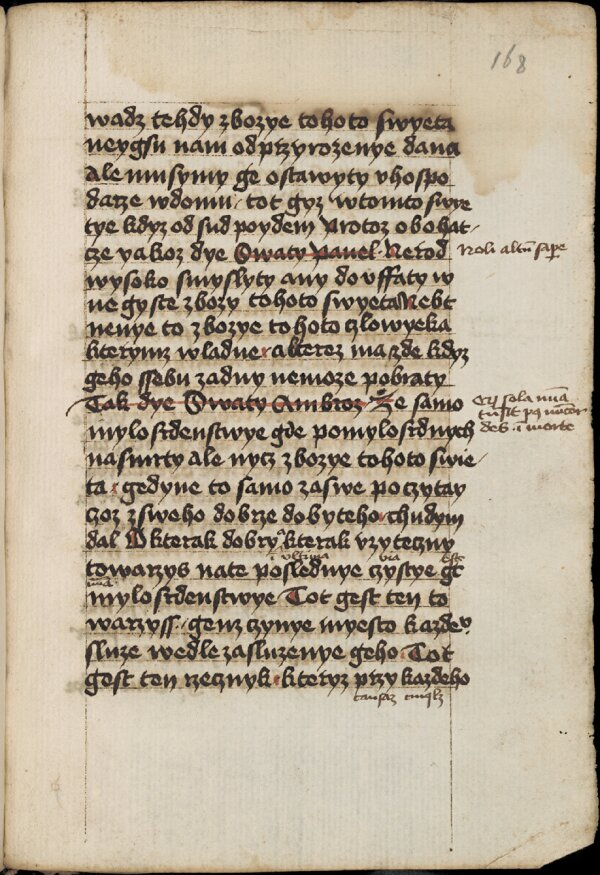 168
wadz tehdy zbozye tohoto swyeta
neygsu nam odprzyrozenye dana
ale musymy ge ostawyty vhospo
darze wdomu tot gyz wtomto swye
tye kdyz od sud poydem Protoz obohat
cze yakoz dye Swaty Pawel Nerod
Noli altum sapere
wysoko smyslyty any douffaty w
negyste zbozy tohoto swyeta Nebt
nenye to zbozye tohoto czlowyeka
kterymz wladne a kterez ma zde kdyz
geho ssebu zadny nemoze pobraty
Tak dye Swaty Ambroz Ze samo
mylosrdenstwye gde pomylosrdnych
nasmrty ale nycz zbozye tohoto swie
ta gedyne to samo zaswe poczytay
czoz zsweho dobrze dobyteho chudym
dal O kterak dobry kterak vzyteczny
towarzys nate poslednye czystye gt
mylosrdenstwye Tot gest ten to
warzyss genz czynye myesto kazdeu
sluze wedle zasluzenye geho Tot
gest ten rzecznyk kteryz przy kazdeho